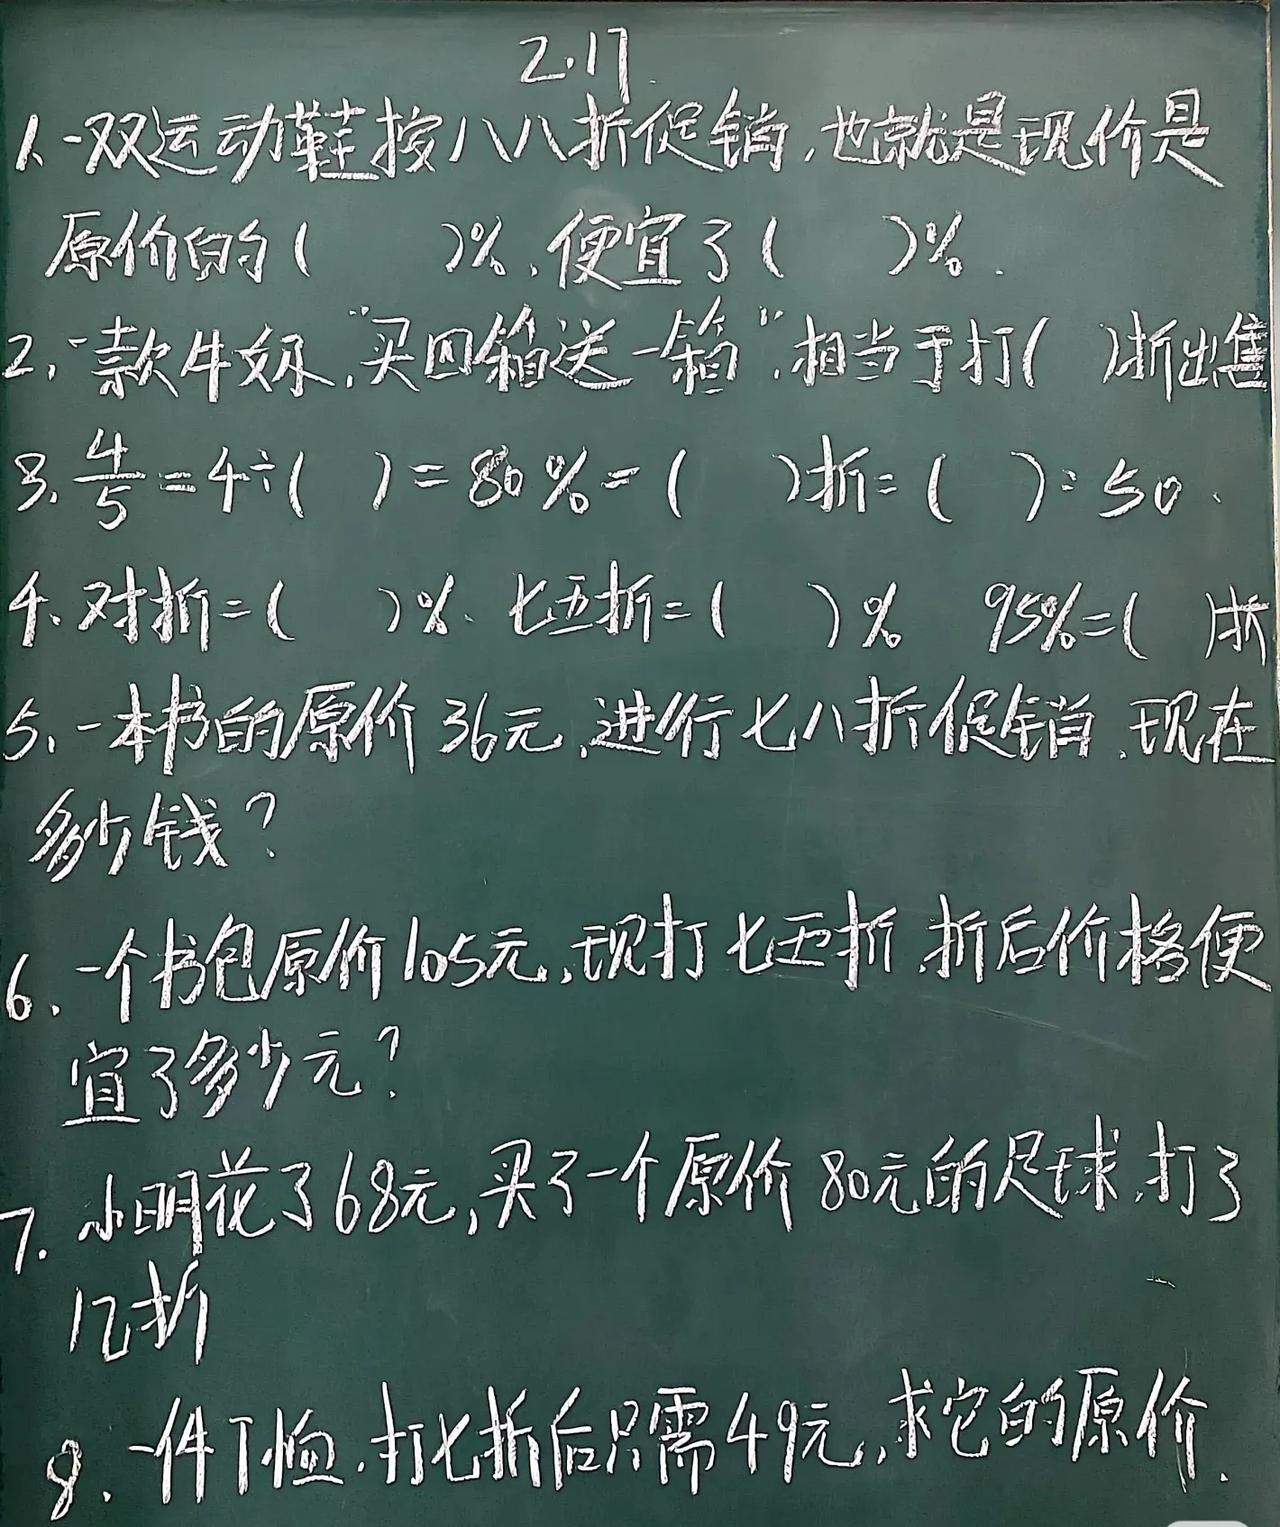 2.17
1、一双运动鞋按八八折促销,也就是现价是
原价的(    )%,便宜了(    )%.
2、一款牛奶,“买四箱送一箱”,相当于打(  )折出售
3、4/5=4÷(  )=80%=(    )折=(  ):50.
4、对折=(    )%、七五折=(    )%  95%=(  )折
5、一本书的原价36元,进行七八折促销,现在
多少钱?
6、一个书包原价105元,现打七五折,折后价格便
宜了多少元?
7、小明花了68元,买了一个原价80元的足球,打了
几折
8、一件T恤,打七折后只需49元,求它的原价.